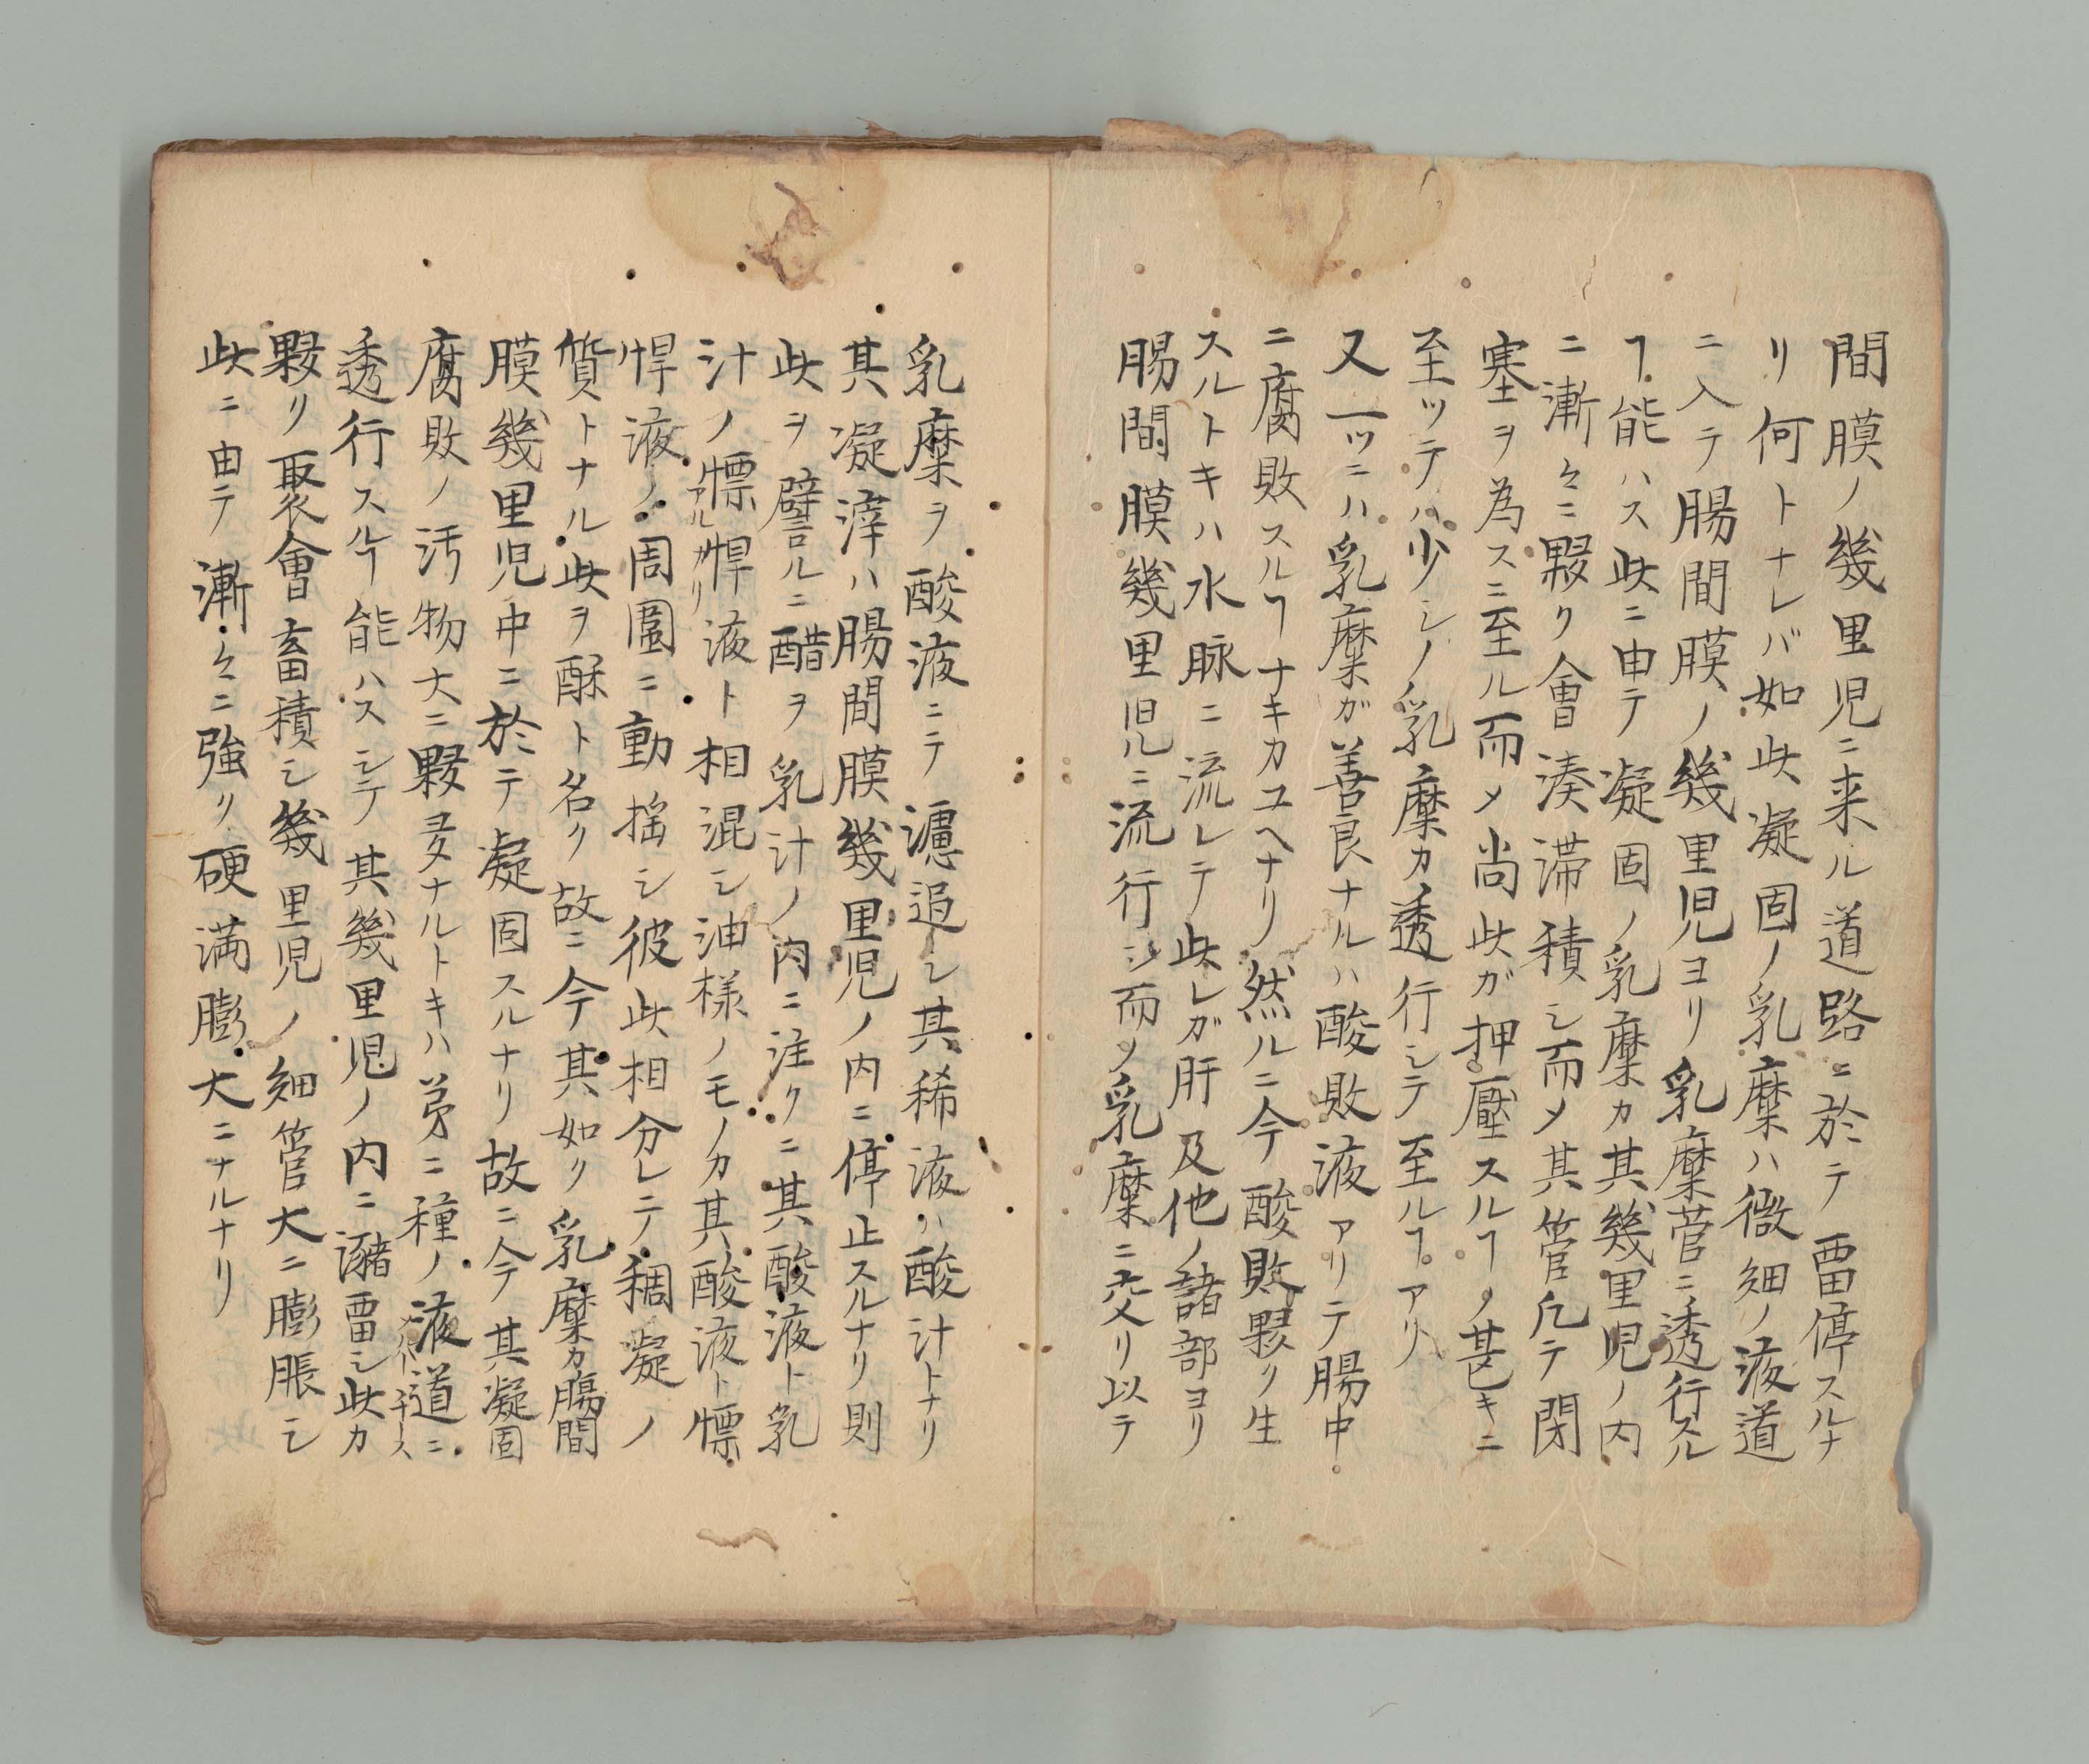 間膜ノ幾里児ニ来ル道路ニ於テ畱停スルナ
リ何トナレバ如此凝固ノ乳糜ハ微細ノ液道
ニ入テ腸間膜ノ幾里児ヨリ乳糜菅ニ透行スル
ヿ能ハス此ニ由テ凝固ノ乳糜カ其幾里児ノ内
ニ漸々ニ夥ク會湊滞積シ而メ其管凢テ閉
塞ヲ為スニ至ル而メ尚此ガ押壓スルヿノ甚キニ
至ッテハ少シノ乳糜カ透行シテ至ルヿアリ
又一ツニハ乳糜ガ善良ナルハ酸敗液アリテ腸中
ニ腐敗スルヿナキカユヘナリ然ルニ今酸敗夥ク生
スルトキハ水脉ニ流レテ此レガ肝及他ノ諸部ヨリ
腸間膜幾里児ニ流行シ而メ乳糜ニ交リ以テ
乳糜ヲ酸液ニテ濾追シ其稀液ハ酸汁トナリ
其凝滓ハ腸間膜幾里児ノ内ニ停止スルナリ則
此ヲ譬ルニ醋ヲ乳汁ノ内ニ注クニ其酸液ト乳
汁ノ慓悍液ト相混シ油様ノモノカ其酸液ト慓
アルカリ
悍液ノ周圍ニ動揺シ彼此相分レテ稠凝ノ
質トナル此ヲ酥ト名ク故ニ今其如ク乳糜カ腸間
膜幾里児中ニ於テ凝固スルナリ故ニ今其凝固
腐敗ノ汚物大ニ夥多ナルトキハ弟ニ種ノ液道ニ
透行スルヿ能ハスシテ其幾里児ノ内ニ瀦畱シ此カ
夥リ聚會畜積シ幾里児ノ細管大ニ膨脹シ
此ニ由テ漸々ニ強ク硬満膨大ニナルナリ